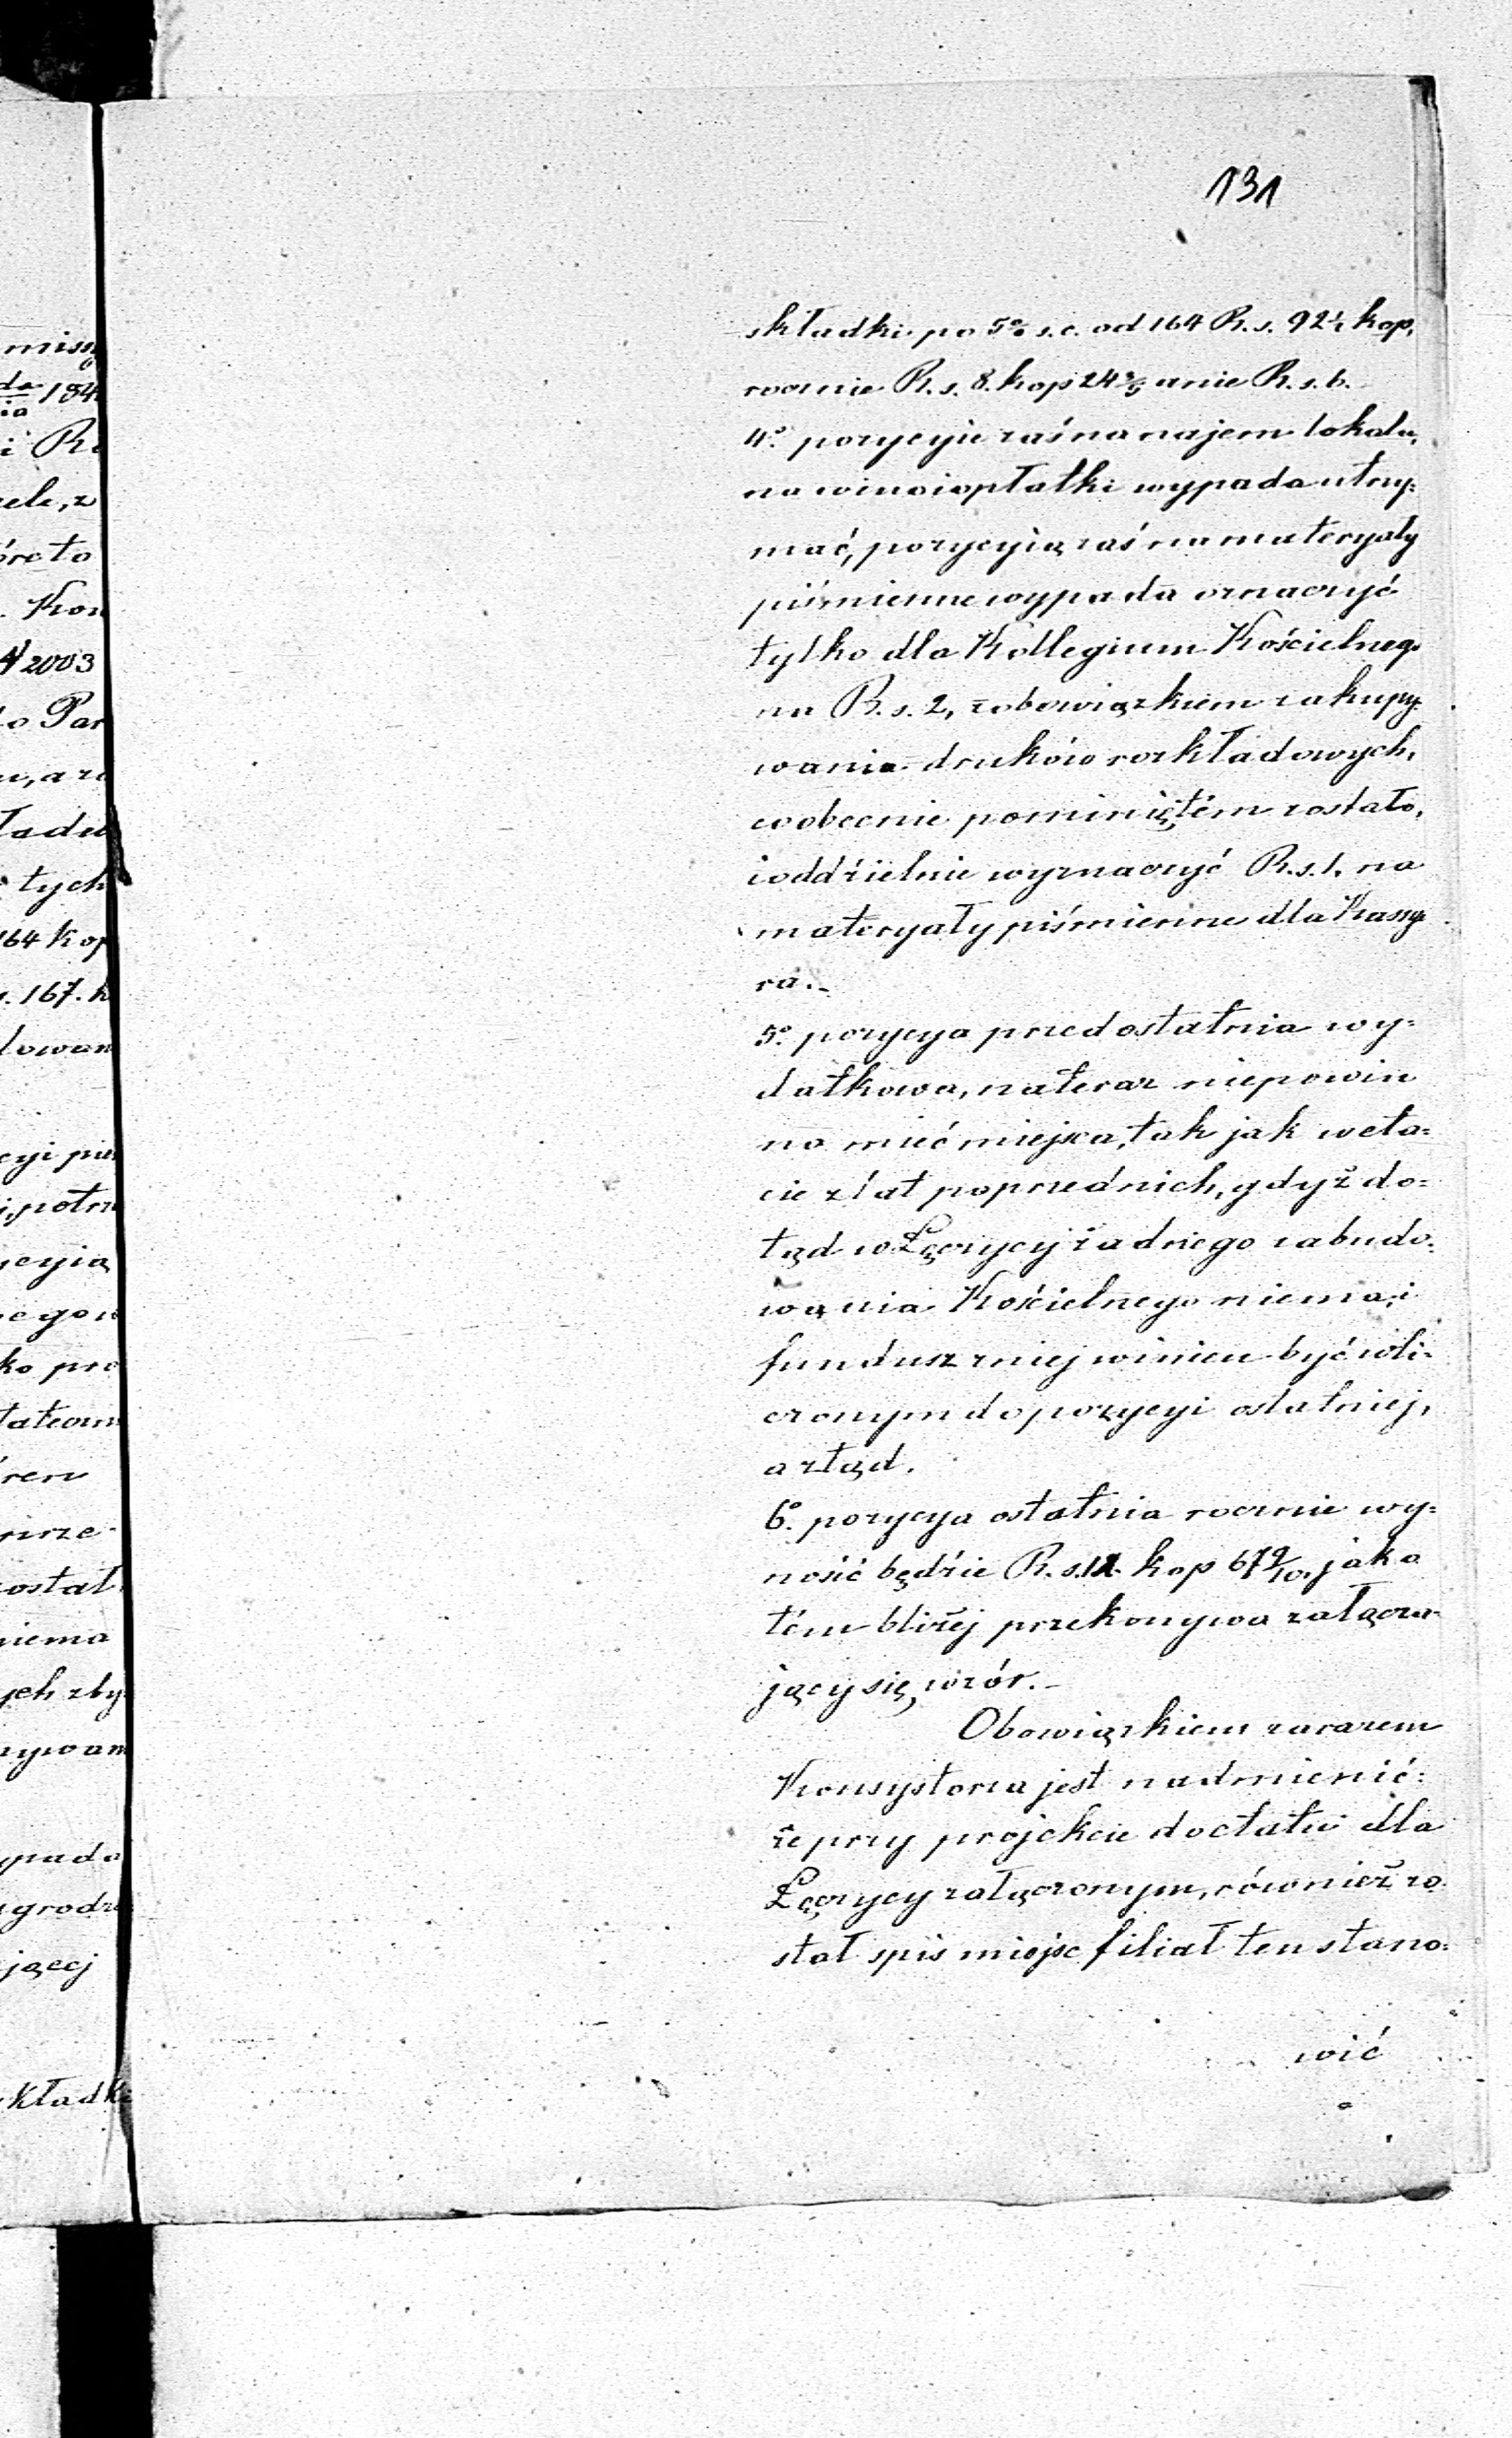 131
składki po 5% s.c. od 164 R.s. 92½ kop.
rocznie R.s. 8. kop 24⅗ a nie R.s. 6.
4º pozycyje zaś na najem lokalu,
na wino i opłatki wypada utrzy=
mać, pozycyią zaś na materyały
piśmienne wypada oznaczyć
tylko dla Kollegium Kościelnego
na R.s. 2, z obowiązkiem zakupy
wania druków rozkładowych,
co obecnie pominiętém zostało,
i oddzielnie wyznaczyć R.s. 1. na
materyały piśmienne dla Kassye
ra.-
5º pozycya przedostatnia wy=
datkowa, na teraz niepowin
na mieć miejsca, tak jak w eta=
cie z lat poprzednich, gdyż do=
tąd w Łęczycy żadnego zabudo=
wania Kościelnego niema, i
fundusz z niej winien być wli=
czonym do pozycyi ostatniej,
a ztąd.
6º pozycya ostatnia rocznie wy=
nosić będzie R.s. kop 67 9/10, jak o
tém bliżej przekonywa załącza=
jący się wzór.-
Obowiązkiem zarazem
Konsystorza jest nadmienić:
że przy projekcie do etatu dla
Łęczycy załączonym, również zo=
stał spis miejsc filiał ten stano=
wić
missy
184
i R
ele, z
óre to
. Kon
N 2003
o Par
ładu
tych
164 kop
. 167. k
lowan
cyi pie
potrz
cyią
ego
ko prz
prze-
ostał
niema
ych zby
ywan
ypada
grodz
jącej
kładki